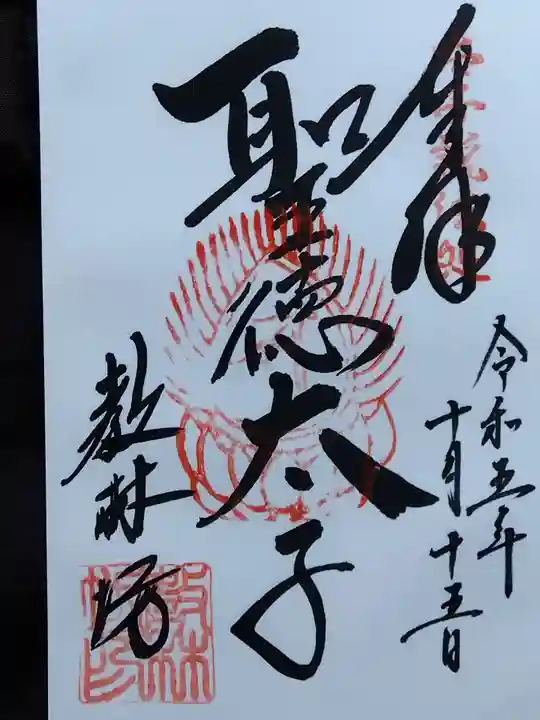 奉拝
令和五年
十月十五日
聖徳太子
教林坊